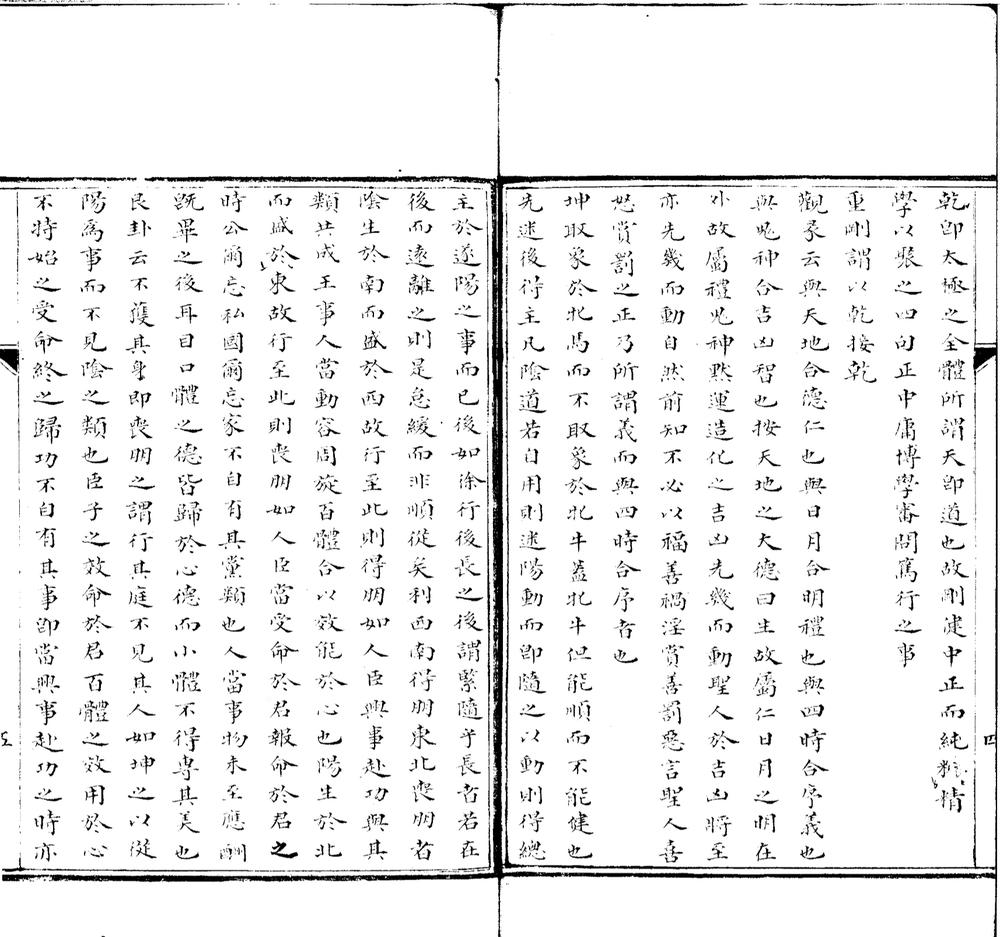 乾即太極之全體所謂天即道也故剛健中正而純粹精
學以聚之四句正中庸博學審問篤行之事
重剛謂以乾接乾
觀彖云與天地合德仁也與日月合明禮也與四時合序義也
與鬼神合吉凶智也按天地之大德曰生故屬仁日月之明在
外故屬禮鬼神默運造化之吉凶先幾而動聖人於吉凶將至
亦先幾而動自然前知不必以福善禍淫賞善罰惡言聖人喜
怒賞罰之正乃所謂義而與四時合序者也
坤取象於牝馬而不取象於牝牛蓋牝牛但能順而不能健也
先迷後得主凡陰道若自用則迷陽動而即隨之以動則得總
主於遂陽之事而已後如徐行後長之後謂緊隨乎長者若在
後而遠離之則是怠緩而非順從矣利西南得朋東北喪朋者
陰生於南而盛於西故行至此則得朋如人臣興事赴功與其
類共成王事人當動容周旋百體合以效能於心也陽生於北
而盛於東故行至此則喪朋如人臣當受命於君報命於君之
時公爾忘私國爾忘家不自有其黨類也人當事物未至應酬
既畢之後耳目口體之德皆歸於心德而小體不得專其美也
艮卦云不獲其身即喪朋之謂行其庭不見其人如坤之以從
陽為事而不見陰之類也臣子之效命於君百體之效用於心
不特始之受命終之歸功不自有其事即當興事赴功之時亦
四
五